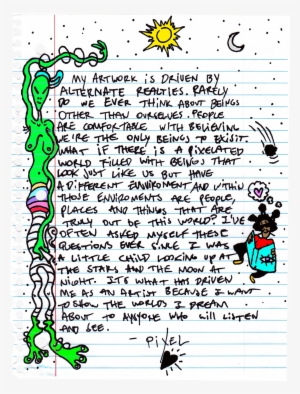 MY ARTWORK IS DRIVEN BY
ALTERNATE REALTIES. RARELY
DO WE EVER THINK ABOUT BEINGS
OTHER THAN OURSELVES. PEOPLE
ARE COMFORTABLE WITH BELIEVING
WE'RE THE ONLY BEINGS TO EXISIT.
WHAT IF THERE IS A PIXELATED
WORLD FILLED WITH BEINGS THAT
LOOK JUST LIKE US BUT HAVE
A DIFFERENT ENVIROMENT AND WITHIN
THOSE ENVIROMENTS ARE PEOPLE,
PLACES AND THINGS THAT ARE
TRULY OUT OF THIS WORLD? I'VE
OFTEN ASKED MYSELF THESE
QUESTIONS EVER SINCE I WAS
A LITTLE CHILD LOOKING UP AT
THE STARS AND THE MOON AT
NIGHT. ITS WHAT HAS DRIVEN
ME AS AN ARTIST BECAUSE I WANT
TO SHOW THE WORLDS I DREAM
ABOUT TO ANYONE WHO WILL LISTEN
AND SEE.
- PiXEL